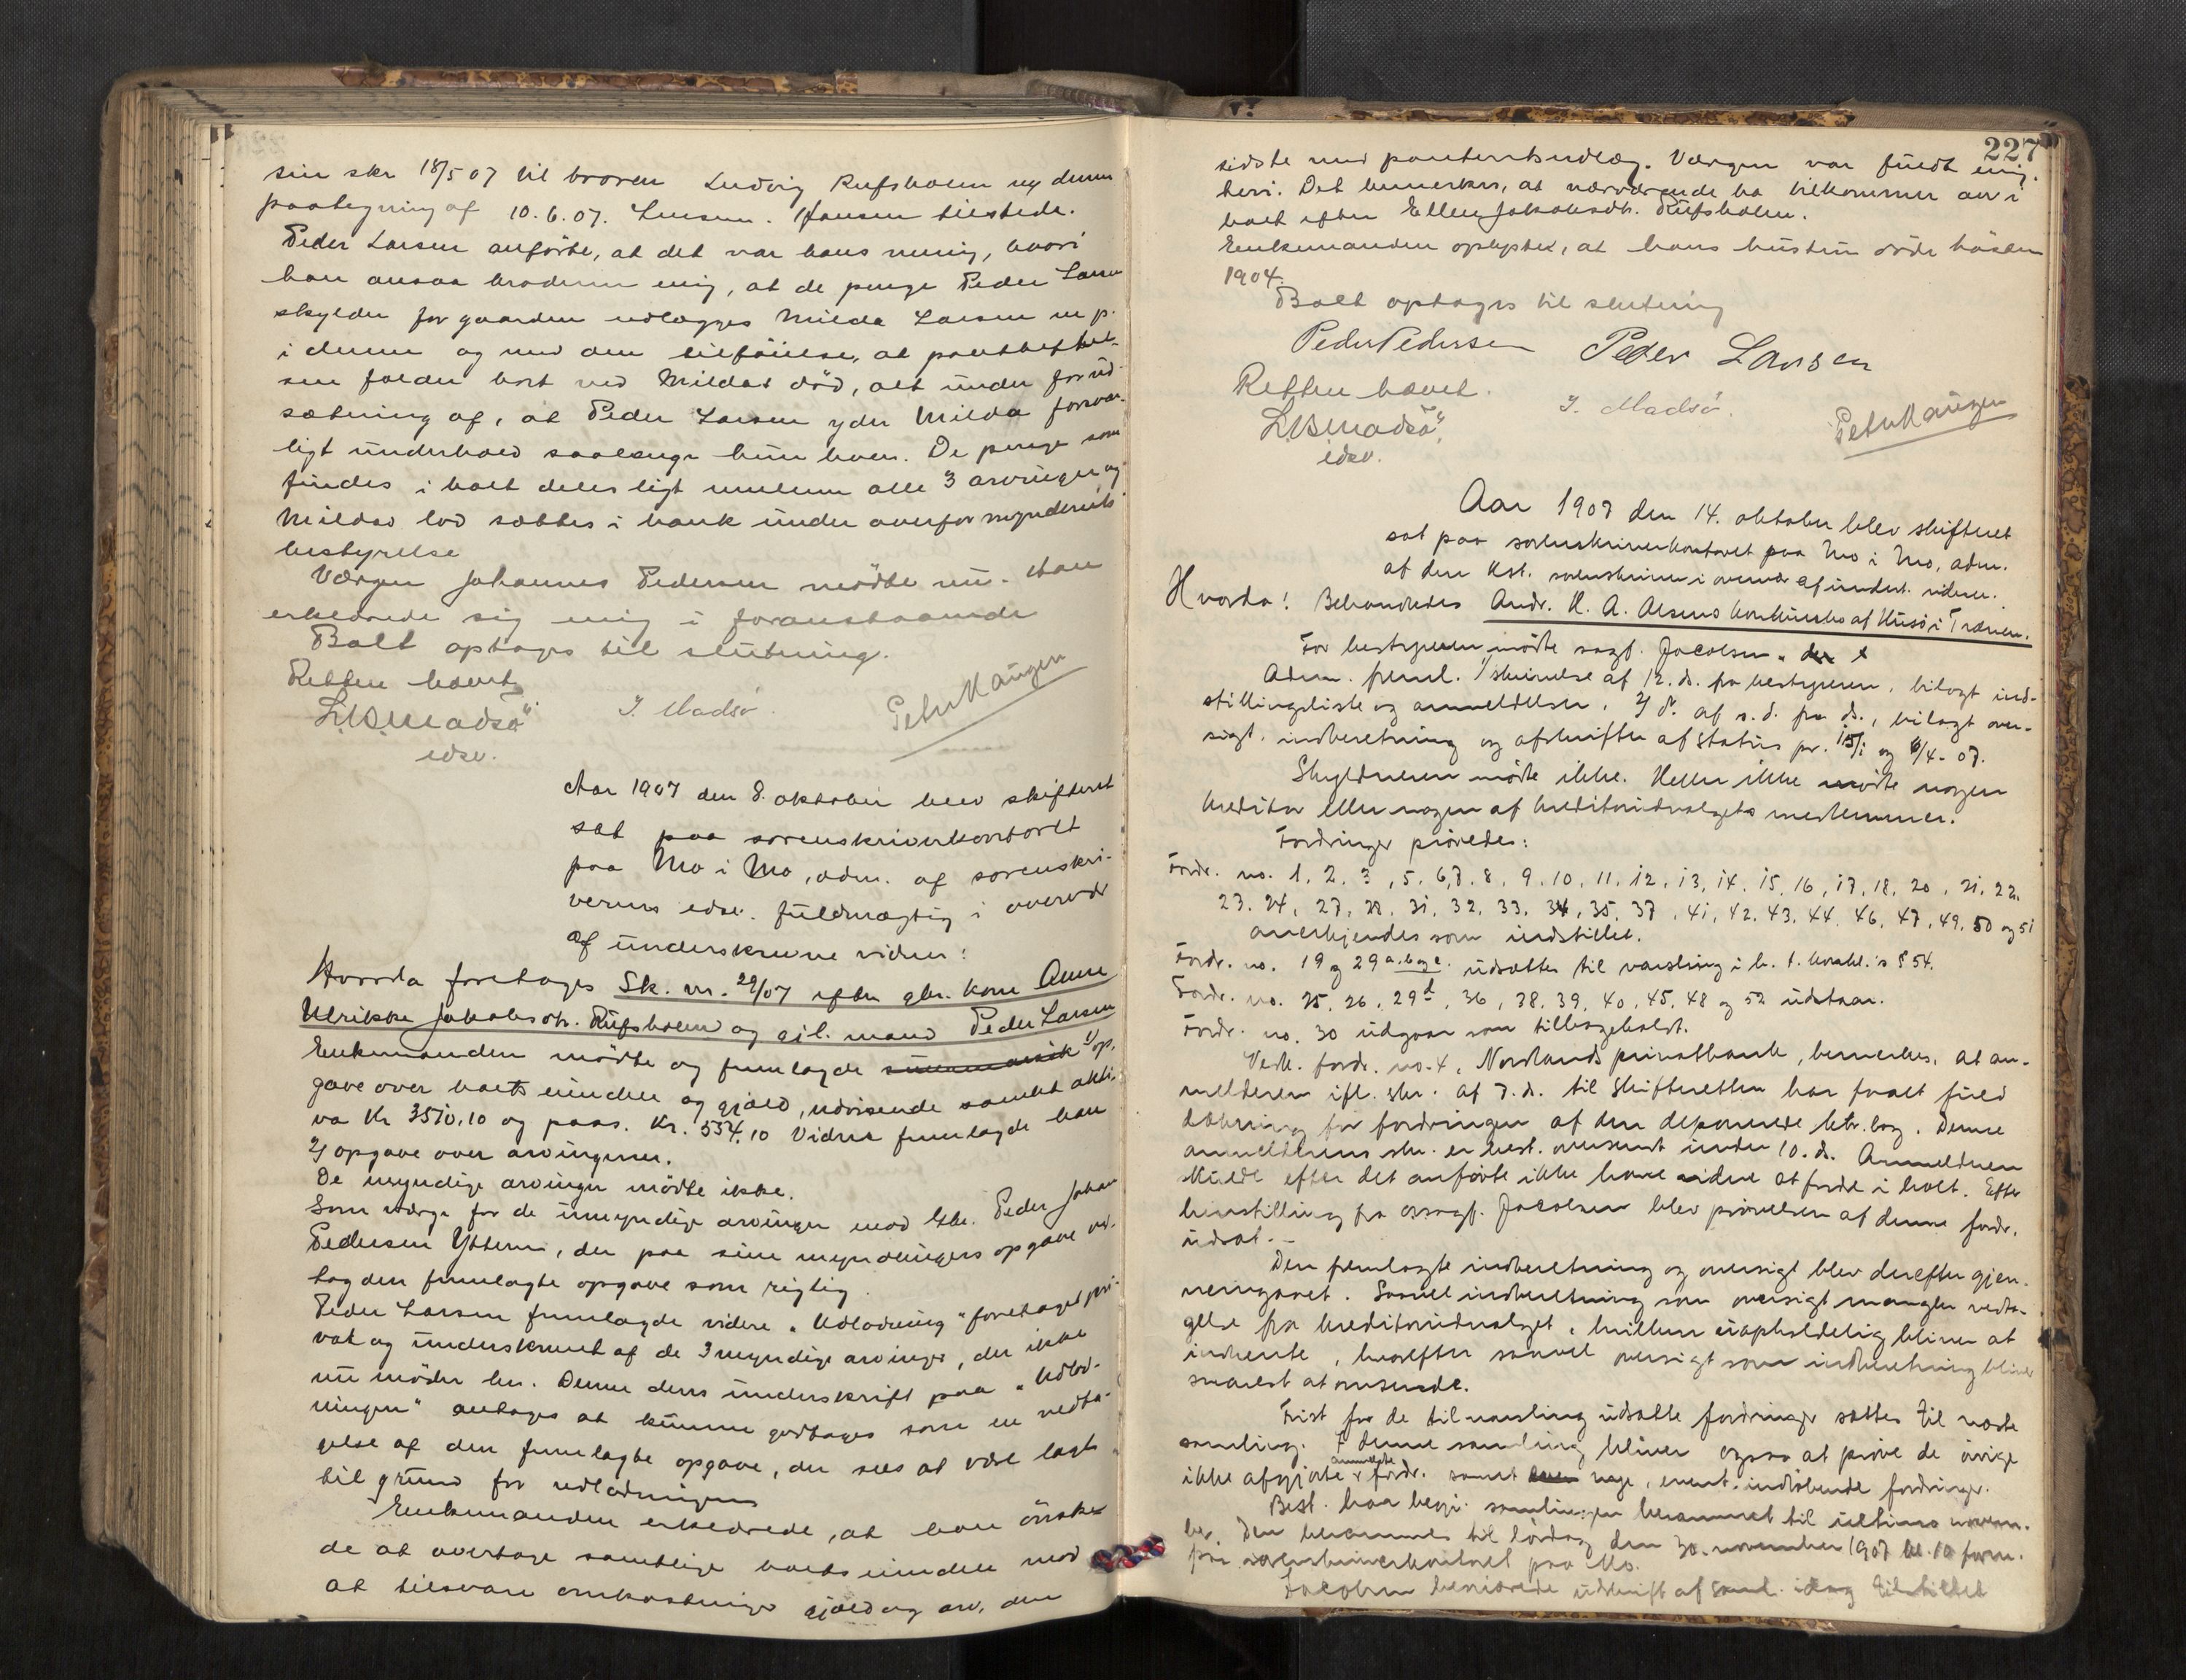 sin skr 18/5 07 til broren Ludvig Rufsholm og dennes
paategning af 10.6.07. Hansen tilstede.
Peder Larsen anförte, at det var hans mening, hvori
han ansaa broderen enig, at de penge Peder Larsen
skylder for gaarden udlægges Milda Larsen m p.
i denne og med den tilföielse, at panthæftel-
sen falder bort ved Mildas död, alt under forud-
sætning af, at Peder Larsen yder Milda forsvar-
ligt underhold saalænge hun lever. De penge som
findes i boet deles ligt mellem alle 3 arvinger og
Mildas lod sættes i bank under overformynderiets
bestyrelse
Værgen Johannes Pedersen mödte nu. Han
erklærede sig enig i foranstaaende
Boet optages til slutning.
Retten hævet
L.B. Madsö
edsv.
J. Madsö.
Peter Haugen
Aar 1907 den 8. oktober blev skifteret
sat paa sorenskriverkontoret
paa Mo i Mo, adm. af sorenskri-
verens edsv. fuldmægtig i overvær
af underskrevne vidner:
Hvorda foretages Sk. nr. 29/07 efter gbr. kone Anne
Ulrikke Jakobsdtr. Rufsholm og gjl. mand Peder Larsen
Enkemanden mödte og fremlagde summarisk 1/ op.
gave over boets eiendele og gjæld, udvisende samlet akti-
va Kr 3510,10 og pass. Kr. 534.10 Videre fremlagde han
2/ opgave over arvingerne.
De myndige arvinger mödte ikke.
Som værge for de umyndige arvinger mod gbr. Peder Johan
Pedersen Yttern, der paa sine myndlingers opgave ved-
tog den fremlagte opgave som rigtig.
Peder Larsen fremlagde videre "Udlodning" foretaget pri-
vat og underskrevet af de 3 myndige arvinger, der ikke
nu möder her. Denne deres underskrift paa "Udlod-
ningen" antages at kunne godtages som en vedta-
gelse af den fremlagte opgave, der sees at være lagt
til grund for udlodningen
Enkemanden erklærede, at han önske-
de at overtage samtlige boets eiendele mod
at tilsvare omkostninger gjæld og arv, den
227
sidste med panteretsudlæg. Værgen var fuldt enig
heri. Det bemerkes, at nærværende bo tilkommer arv i
boet efter Ellen Jakobsdtr. Rufsholm.
Enkemanden oplyste, at hans hustru döde hösten
1904.
Boet optages til slutning
Peder Pedersen Peder Larsen
Retten hævet.
L.B. Madsö
edsv.
J. Madsö.
Peter Haugen
Aar 1907 den 14. oktober blev skifteret
sat paa sorenskriverkontoret paa Mo i Mo, adm.
af den kst. sorenskriver i overvær af undert. vidner.
Hvorda: Behandledes Andr. H. A. Olsens konkursbo af Husö i Trænen.
For bestyreren mödte sagf. Jacobsen.
Adm. freml. 1/ skrivelse af 12. ds. fra bestyreren, bilagt ind-
stillingsliste og anmeldelser, 2/ do. af s. d. fra ds., bilagt over-
sigt. indberetning og afskrifter af status pr. 15/1 og 6/4-07.
Skyldneren mödte ikke. Heller ikke mödte nogen
kreditor eller nogen af kreditorudvalgets medlemmer.
Fordringer prövedes:
Fordr. no. 1, 2, 3, 5, 6, 7, 8, 9, 10, 11, 12, 13, 14, 15, 16, 17, 18, 20, 21, 22,
23, 24, 27, 28, 31, 32, 33, 34, 35, 37, 41, 42, 43, 44, 46, 47, 49, 50 og 51
anerkjendes som indstillet.
Fordr. no. 19 og 29 a, b og c. udsættes til varsling i h. t. konkl.'s § 54.
Fordr. no. 25, 26, 29 d, 36, 38, 39, 40, 45, 48 og 52 udstaar.
Fordr. no. 30 udgaar som tilbagekaldt.
Vedk. fordr. no. 4, Nordlands privatbank, bemerkes, at an-
melderen ifl. skr. af 7. ds. til skifteretten har faaet fuld
dækning for fordringen af den deponerede ktr. bog. Denne
anmelderens skr. er best. oversendt under 10. ds. Anmelderen
skulde efter det anförte ikke have videre at fordre i boet. Efter
henstilling fra sagf. Jacobsen blev prövelsen af denne fordr.
udsat.-
Den fremlagte indberetning og oversigt blev derefter gjen-
nemgaaet. Saavel indberetning som oversigt mangler vedta-
gelse fra kreditorudvalget, hvilken uopholdelig bliver at
indhente, hvorefter saavel oversigt som indberetning bliver
snarest at omsende.
Frist for de til varsling udsatte fordringer sættes til næste
samling. I denne samling bliver ogsaa at pröve de övrige
ikke afgjorte anmeldte fordr. samt nye, event. indlöbende fordringer.
Best. har begj. samlingen berammet til ultimo novem-
ber. Den berammes til lördag den 30. november 1907 kl. 10 form.
paa sorenskriverkontoret paa Mo.
Jacobsen begjærede udskrift af saml. idag tilstillet